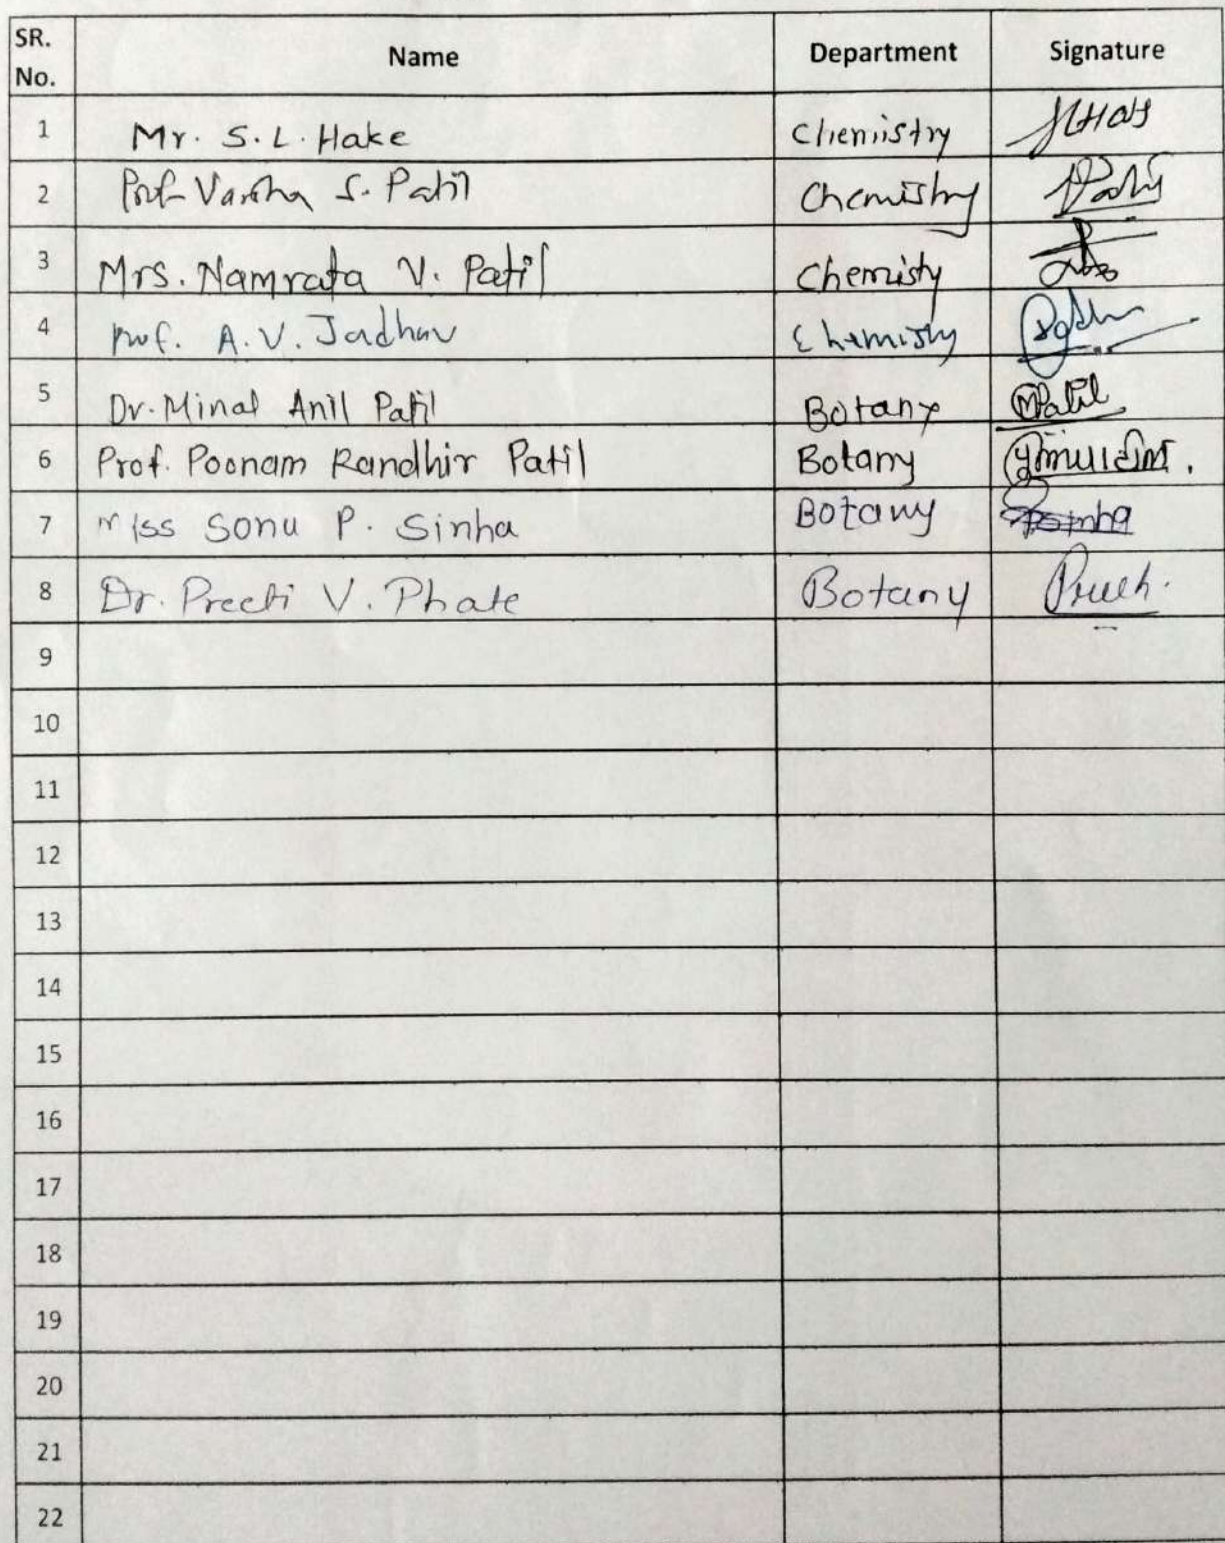 SR. No. Name Department Signature
1 Mr. S. L. Hake Chemistry
2 Prof Varsha S. Patil Chemistry
3 Mrs. Namrata V. Patil Chemisty
4 Prof. A. V. Jadhav Chemistry
5 Dr. Minal Anil Patil Botany MPatil
6 Prof. Poonam Randhir Patil Botany
7 Miss Sonu P. Sinha Botany
8 Dr. Preeti V. Phate Botany
9
10
11
12
13
14
15
16
17
18
19
20
21
22